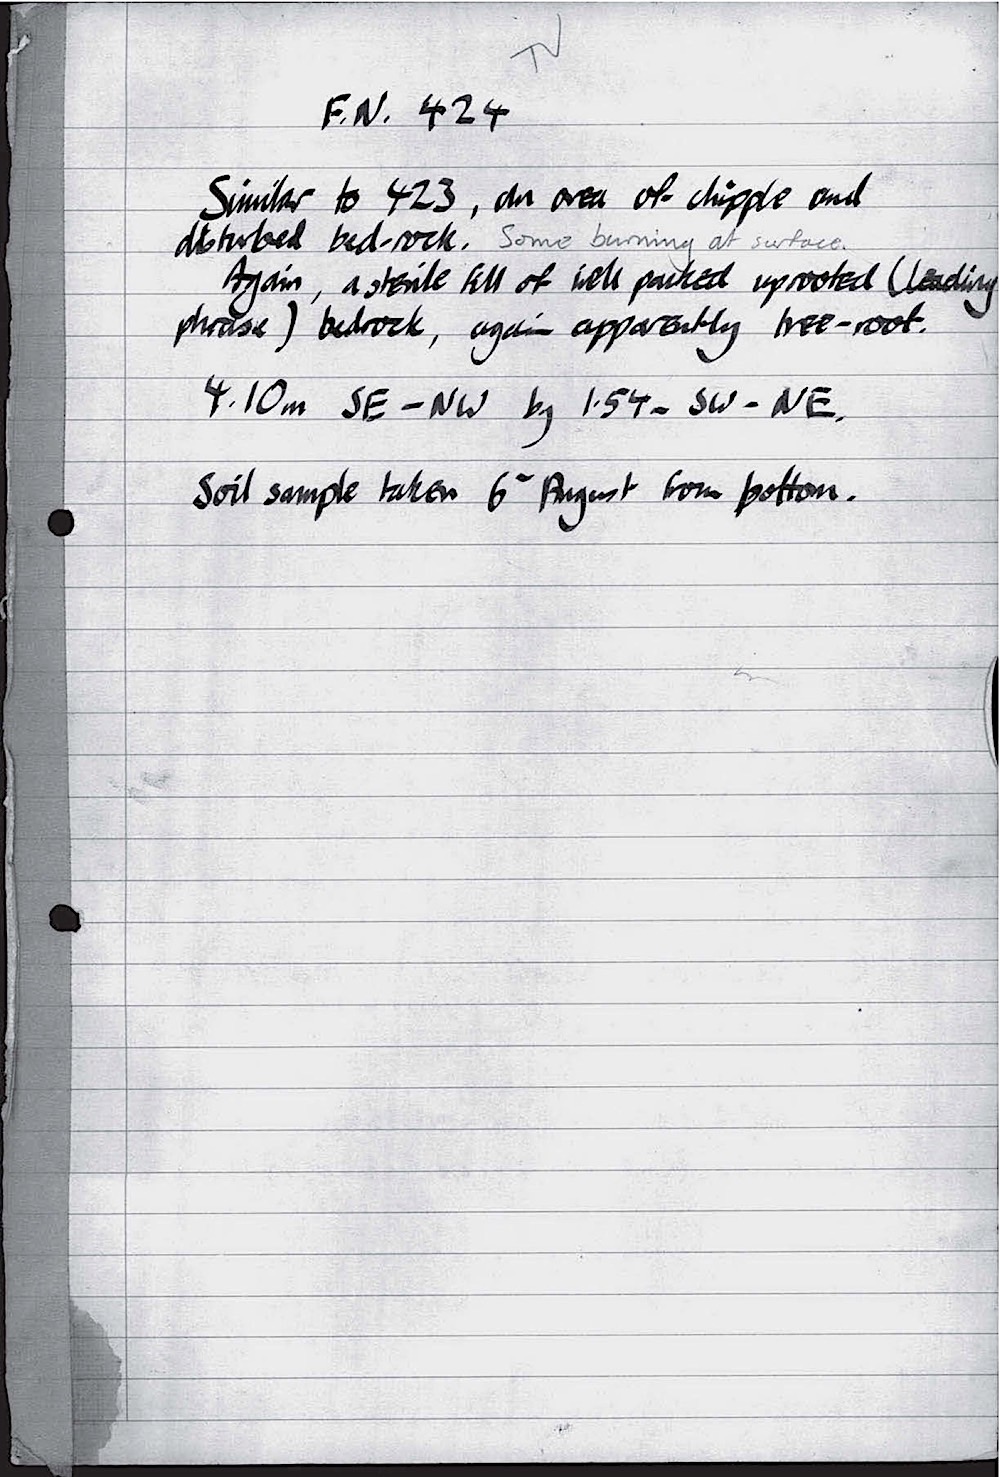 TV
F.N. 424
Similar to 423, an area of chipple and
disturbed bed-rock. Some burning at surface.
Again, a sterile fill of well packed uprooted (leading
phrase) bedrock, again apparently tree-root.
4.10m SE-NW by 1.54m SW-NE.
Soil sample taken 6th August from bottom.